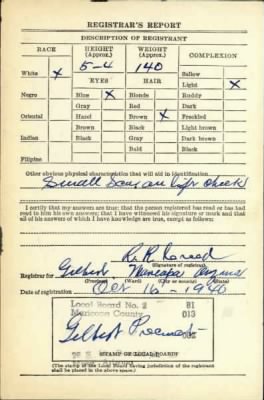 REGISTRAR'S REPORT
DESCRIPTION OF REGISTRANT
RACE HEIGHT (Approx.) WEIGHT (Approx.) COMPLEXION
5-4 140
White X Sallow
EYES HAIR Light X
Negro Blue X Blonde Ruddy
Gray Red Dark
Oriental Hazel Brown X Freckled
Brown Black Light brown
Indian Black Gray Dark brown
Bald Black
Filipino
Other obvious physical characteristics that will aid in identification
Small Scar on left cheek
I certify that my answers are true; that the person registered has read or has had
read to him his own answers; that I have witnessed his signature or mark and that
all of his answers of which I have knowledge are true, except as follows:
R. R.
(Signature of registrar)
Registrar for Gilbert Maricopa Arizona
(Precinct) (Ward) (City or county) (State)
Date of registration Oct 16 - 1940
Local Board No. 2 81
Maricopa County 013
Gilbert Precinct
STAMP OF LOCAL BOARD
(The stamp of the Local Board having jurisdiction of the registrant
shall be placed in the above space.)